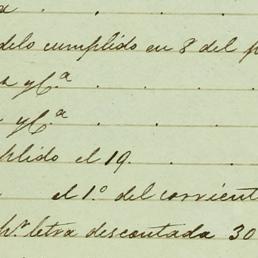 a . . . .
delo cumplido en 8 del p
a y C.ª
y C.ª
plido el 19. . . .
el 1º. del corrient
p.r letra descontada 30